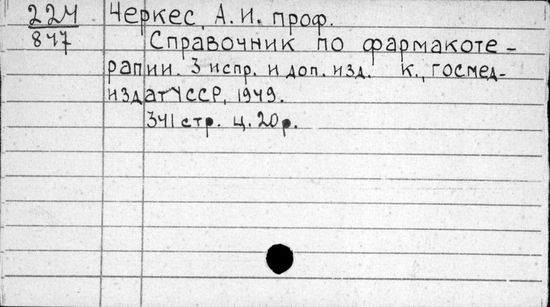 224
847
Черкес, А. И. проф.
Справочник по фармакоте-
рапии. 3 испр. и доп. изд. К., Госмед-
издат УССР, 1949.
341 стр. ц. 20 р.